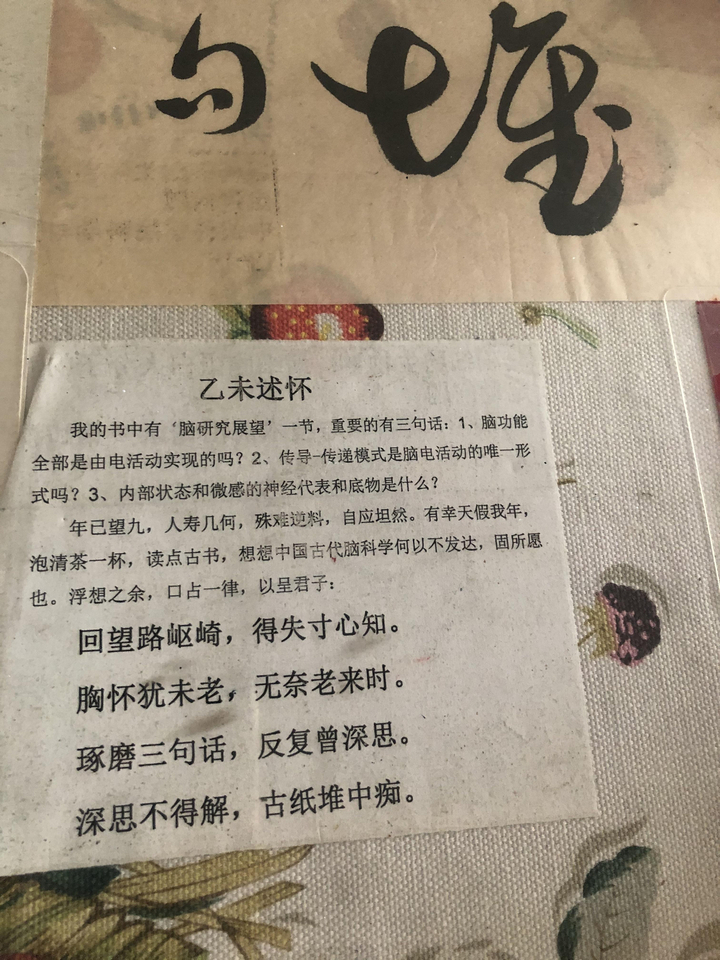 句七堆
乙未述怀
我的书中有‘脑研究展望’一节，重要的有三句话：1、脑功能
全部是由电活动实现的吗？2、传导-传递模式是脑电活动的唯一形
式吗？3、内部状态和微感的神经代表和底物是什么？
年已望九，人寿几何，殊难逆料，自应坦然。有幸天假我年，
泡清茶一杯，读点古书，想想中国古代脑科学何以不发达，固所愿
也。浮想之余，口占一律，以呈君子：
回望路岖崎，得失寸心知。
胸怀犹未老，无奈老来时。
琢磨三句话，反复曾深思。
深思不得解，古纸堆中痴。